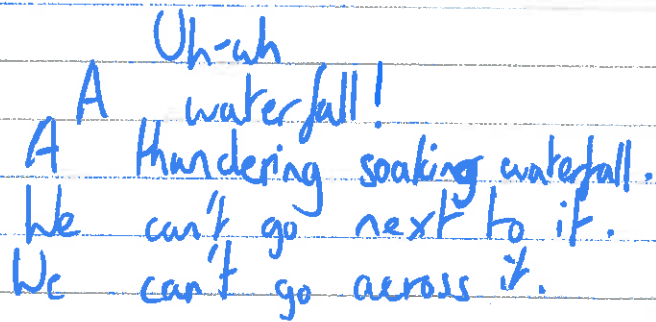 Uh-uh
A waterfall!
A thundering soaking waterfall.
We can't go next to it.
We can't go across it.